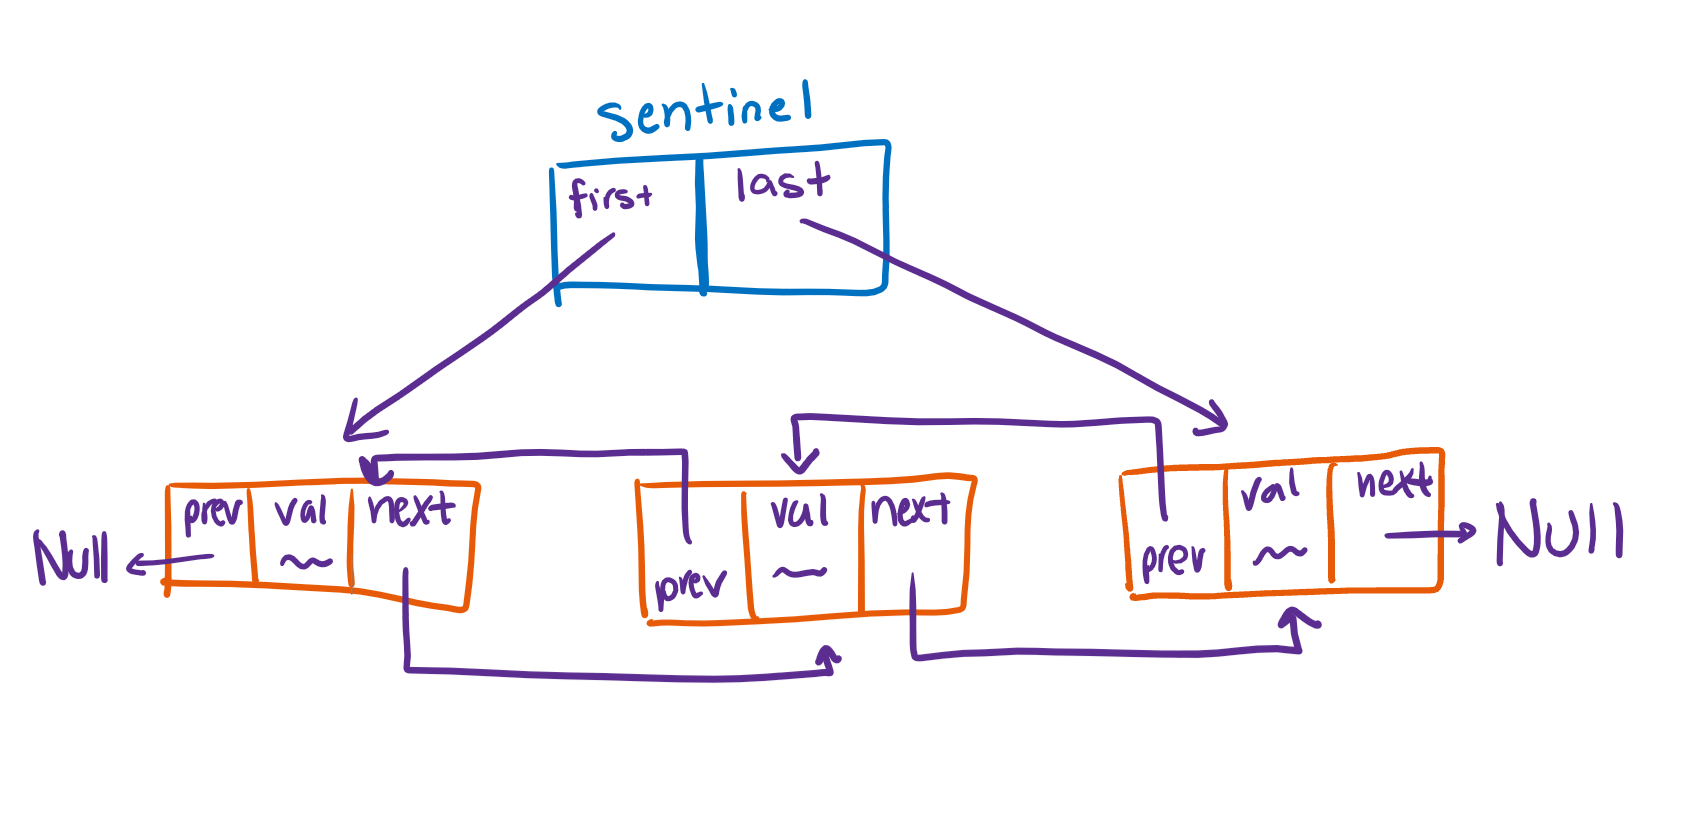 sentinel
first last
Null prev val next
prev val next
prev val next Null